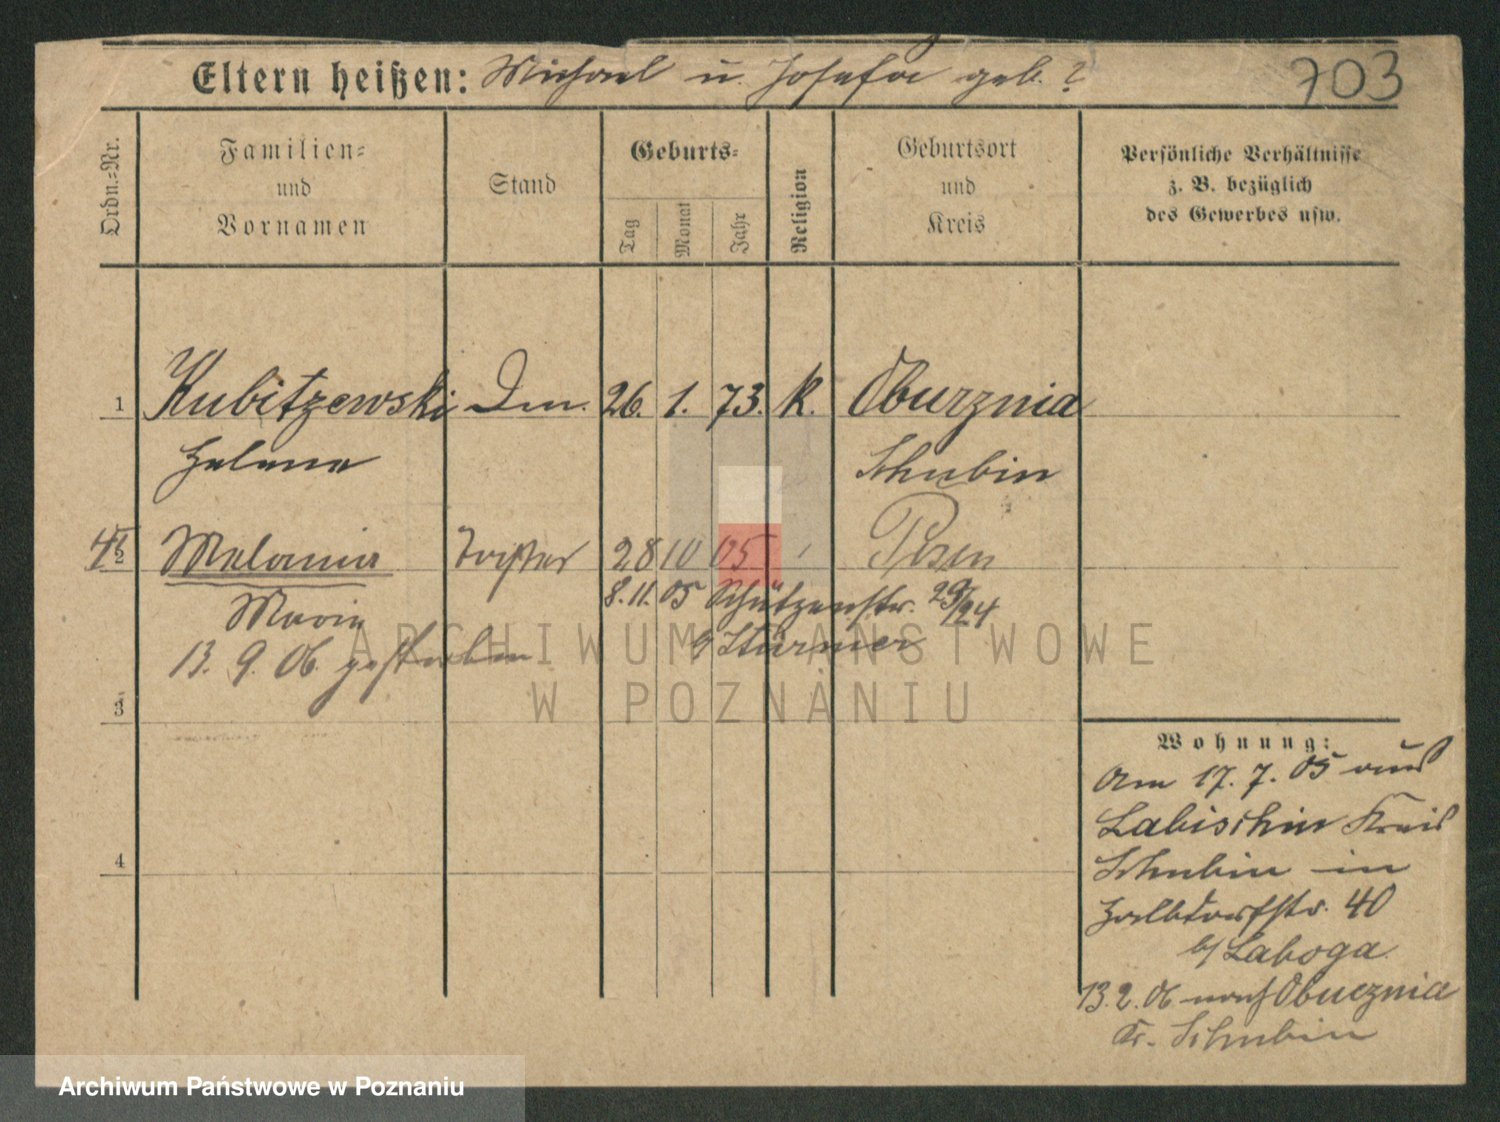 Eltern heißen: Michael u. Josefa geb. ?
703
Ordn.-Nr.
Familien-
und
Vornamen
Stand
Geburts-
Tag
Monat
Jahr
Religion
Geburtsort
und
Kreis
Persönliche Verhältnisse
z. B. bezüglich
des Gewerbes usw.
1 Kubitzewski Dm. 26. 1. 73. K. Oburznia
Helena Schubin
2 Melania Tochter 28 10 05 Posen
8.11.05 Schützenstr. 23/24
Maria
b/ Stürmer
13. 9. 06 gestorben
3
Wohnung:
Am 17. 7. 05 aus
Labischin Kreis
4
Schubin in
Halbdorfstr. 40
b/ Laboga
13.2.06 nach Obuznia
Kr. Schubin
ARCHIWUM PAŃSTWOWE
W POZNANIU
Archiwum Państwowe w Poznaniu